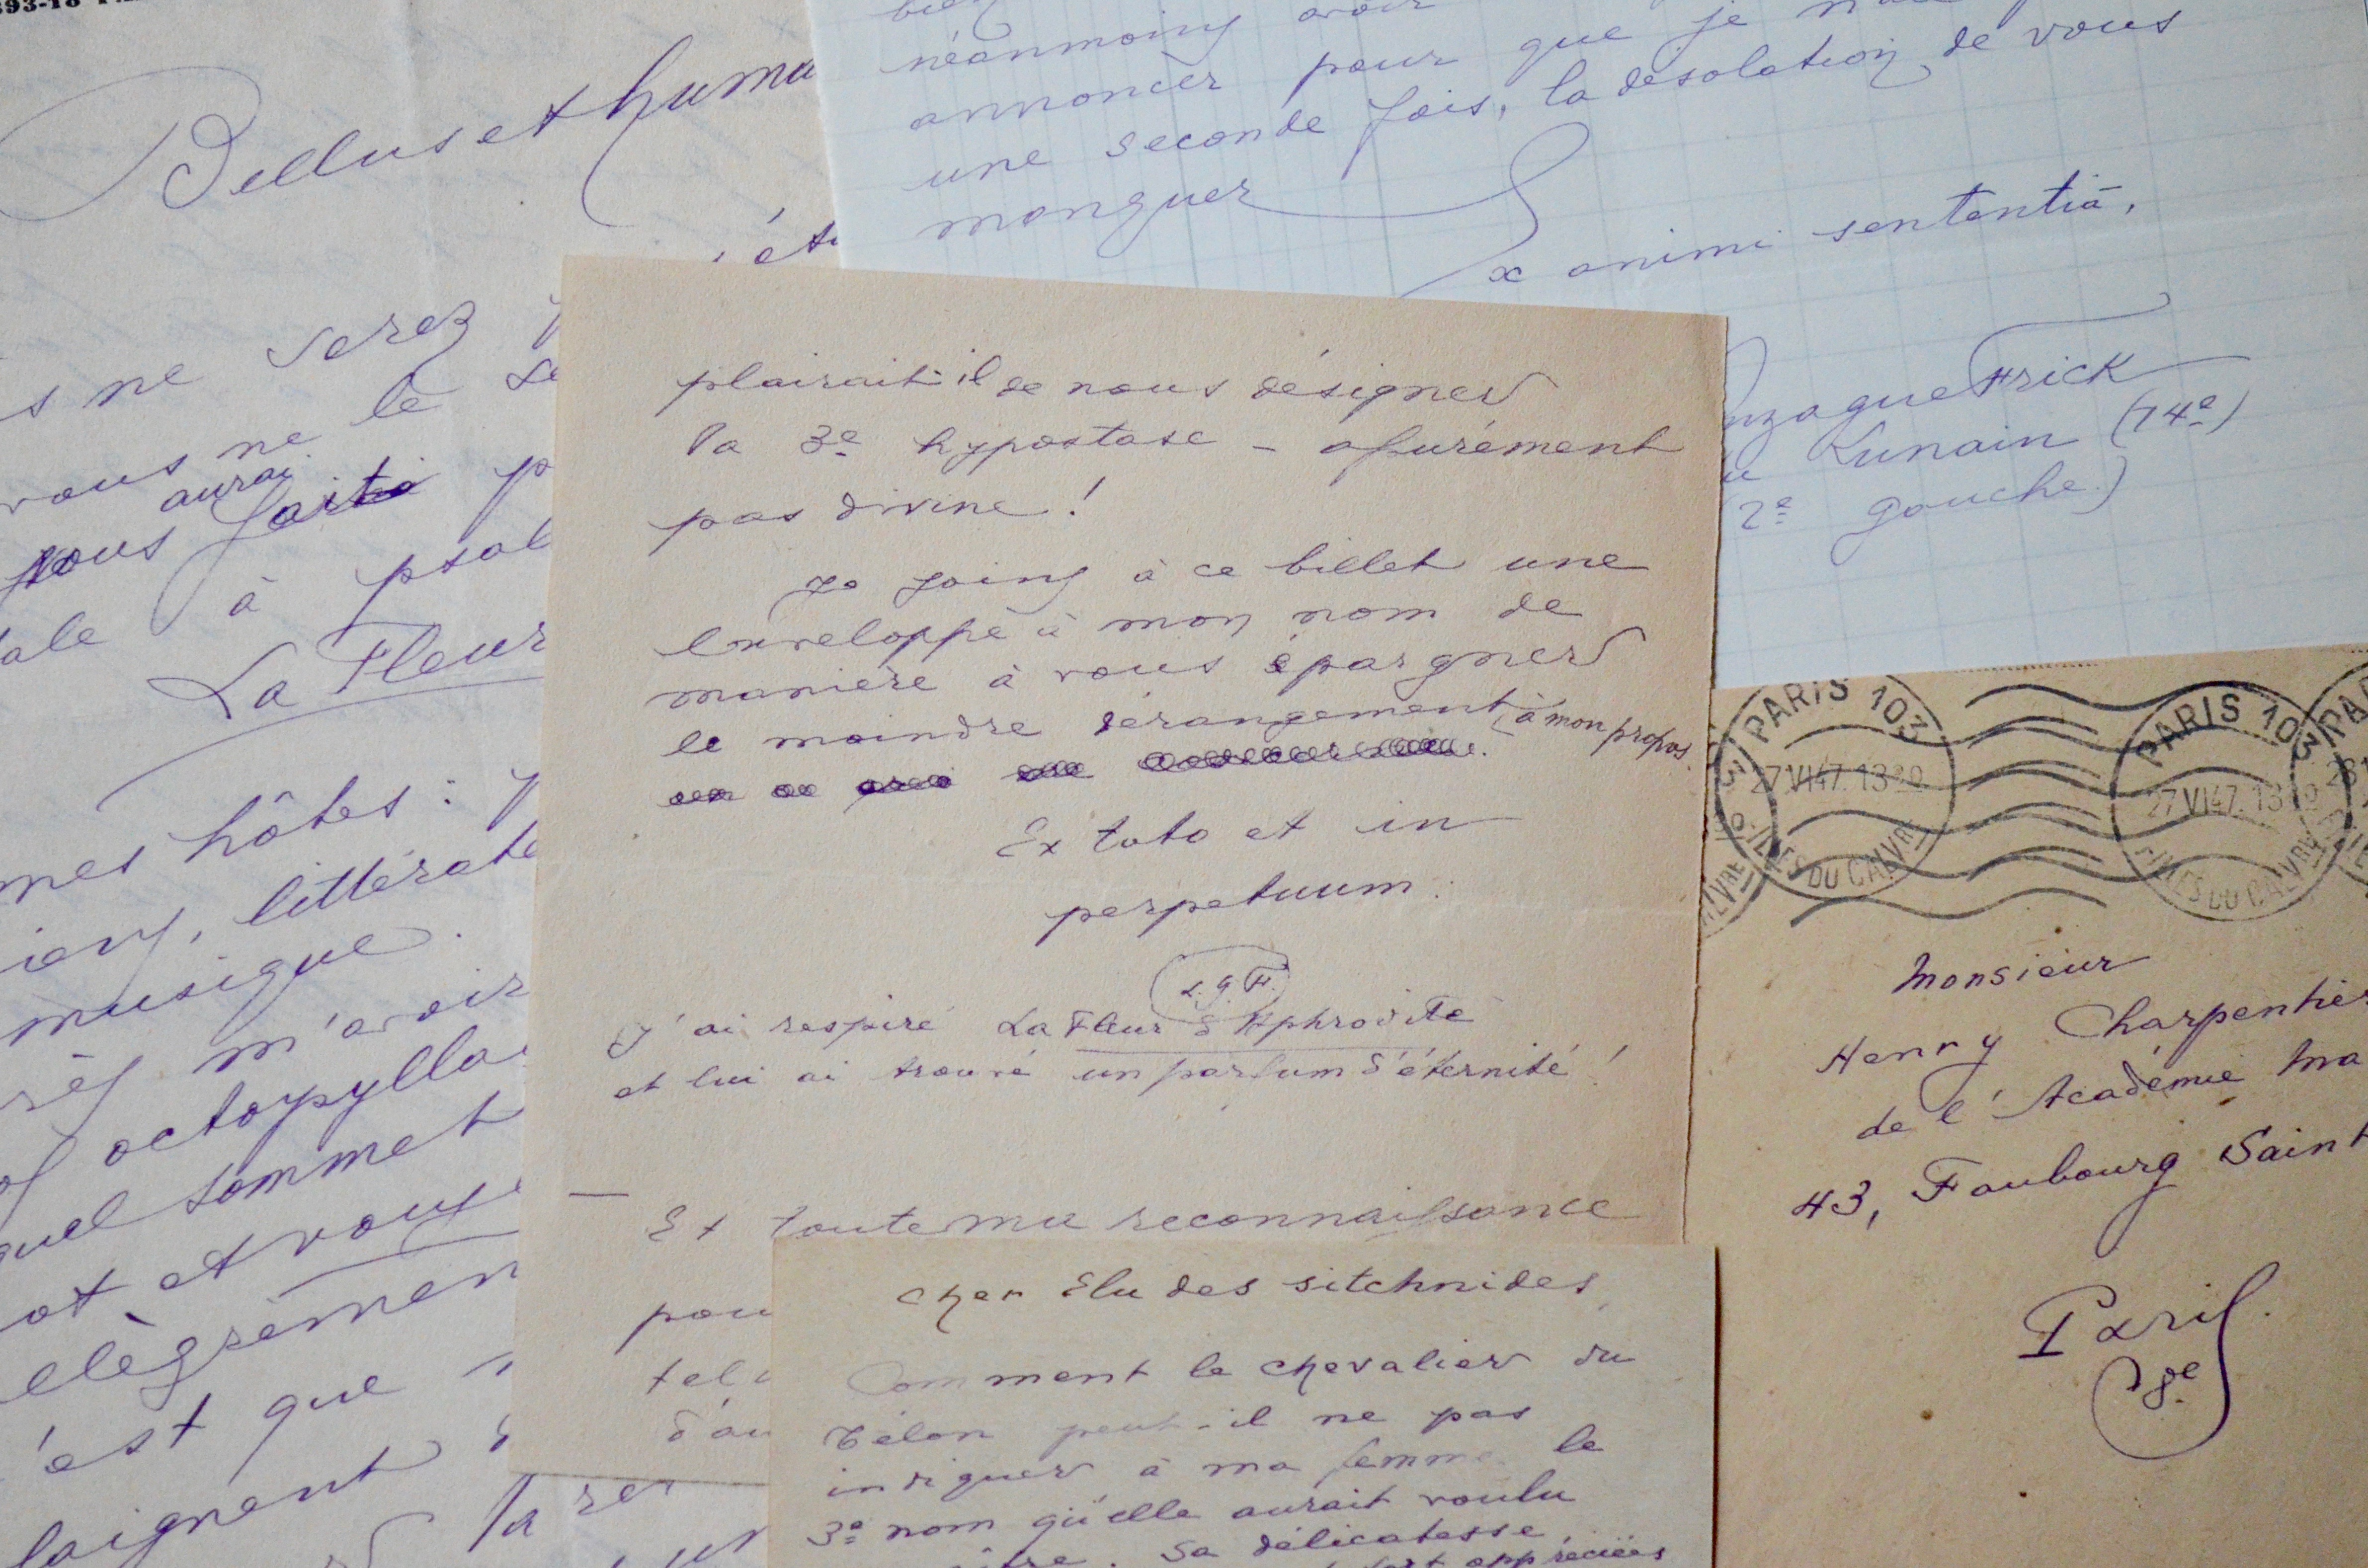 393-18
Bellus et huma
, ét
s ne serez
vous ne le se
aurai
vous fait p
ale à psal
La Fleur
mes hôtes :
, littérate
musique.
m'avoir
octopylla
quel sommet
ot et vous
elègrèmen
'est que
laignent
la rer
néanmoins avoir
annoncer pour que je
une seconde fois, la désolation de vous
manquer
Ex animi sententiā,
nzague Frick
u Lunain (14e)
2e gauche)
plairait-il de nous désigner
la 3e hypostase - assurément
pas divine !
Je joins à ce billet une
enveloppe à mon nom de
manière à vous épargner
le moindre dérangement, à mon propos.
Ex toto et in
perpetuum.
L. G. F.
J'ai respiré La Fleur d'Aphrodite
et lui ai trouvé un parfum d'éternité !
Et toute ma reconnaissance
pou
tel
d'au
Cher Elu des sitchnides,
Comment le chevalier du
Télon peut-il ne pas
indiquer à ma femme le
3e nom qu'elle aurait voulu
Sa délicatesse
appréciées
PARIS 103
27 VI 47. 13 30
FILLES DU CALVRE
PARIS 103
27 VI 47. 13 30
FILLES DU CALVRE
PAR
Monsieur
Henry Charpentier
de l'Académie Ma
43, Faubourg Saint
Paris.
8e